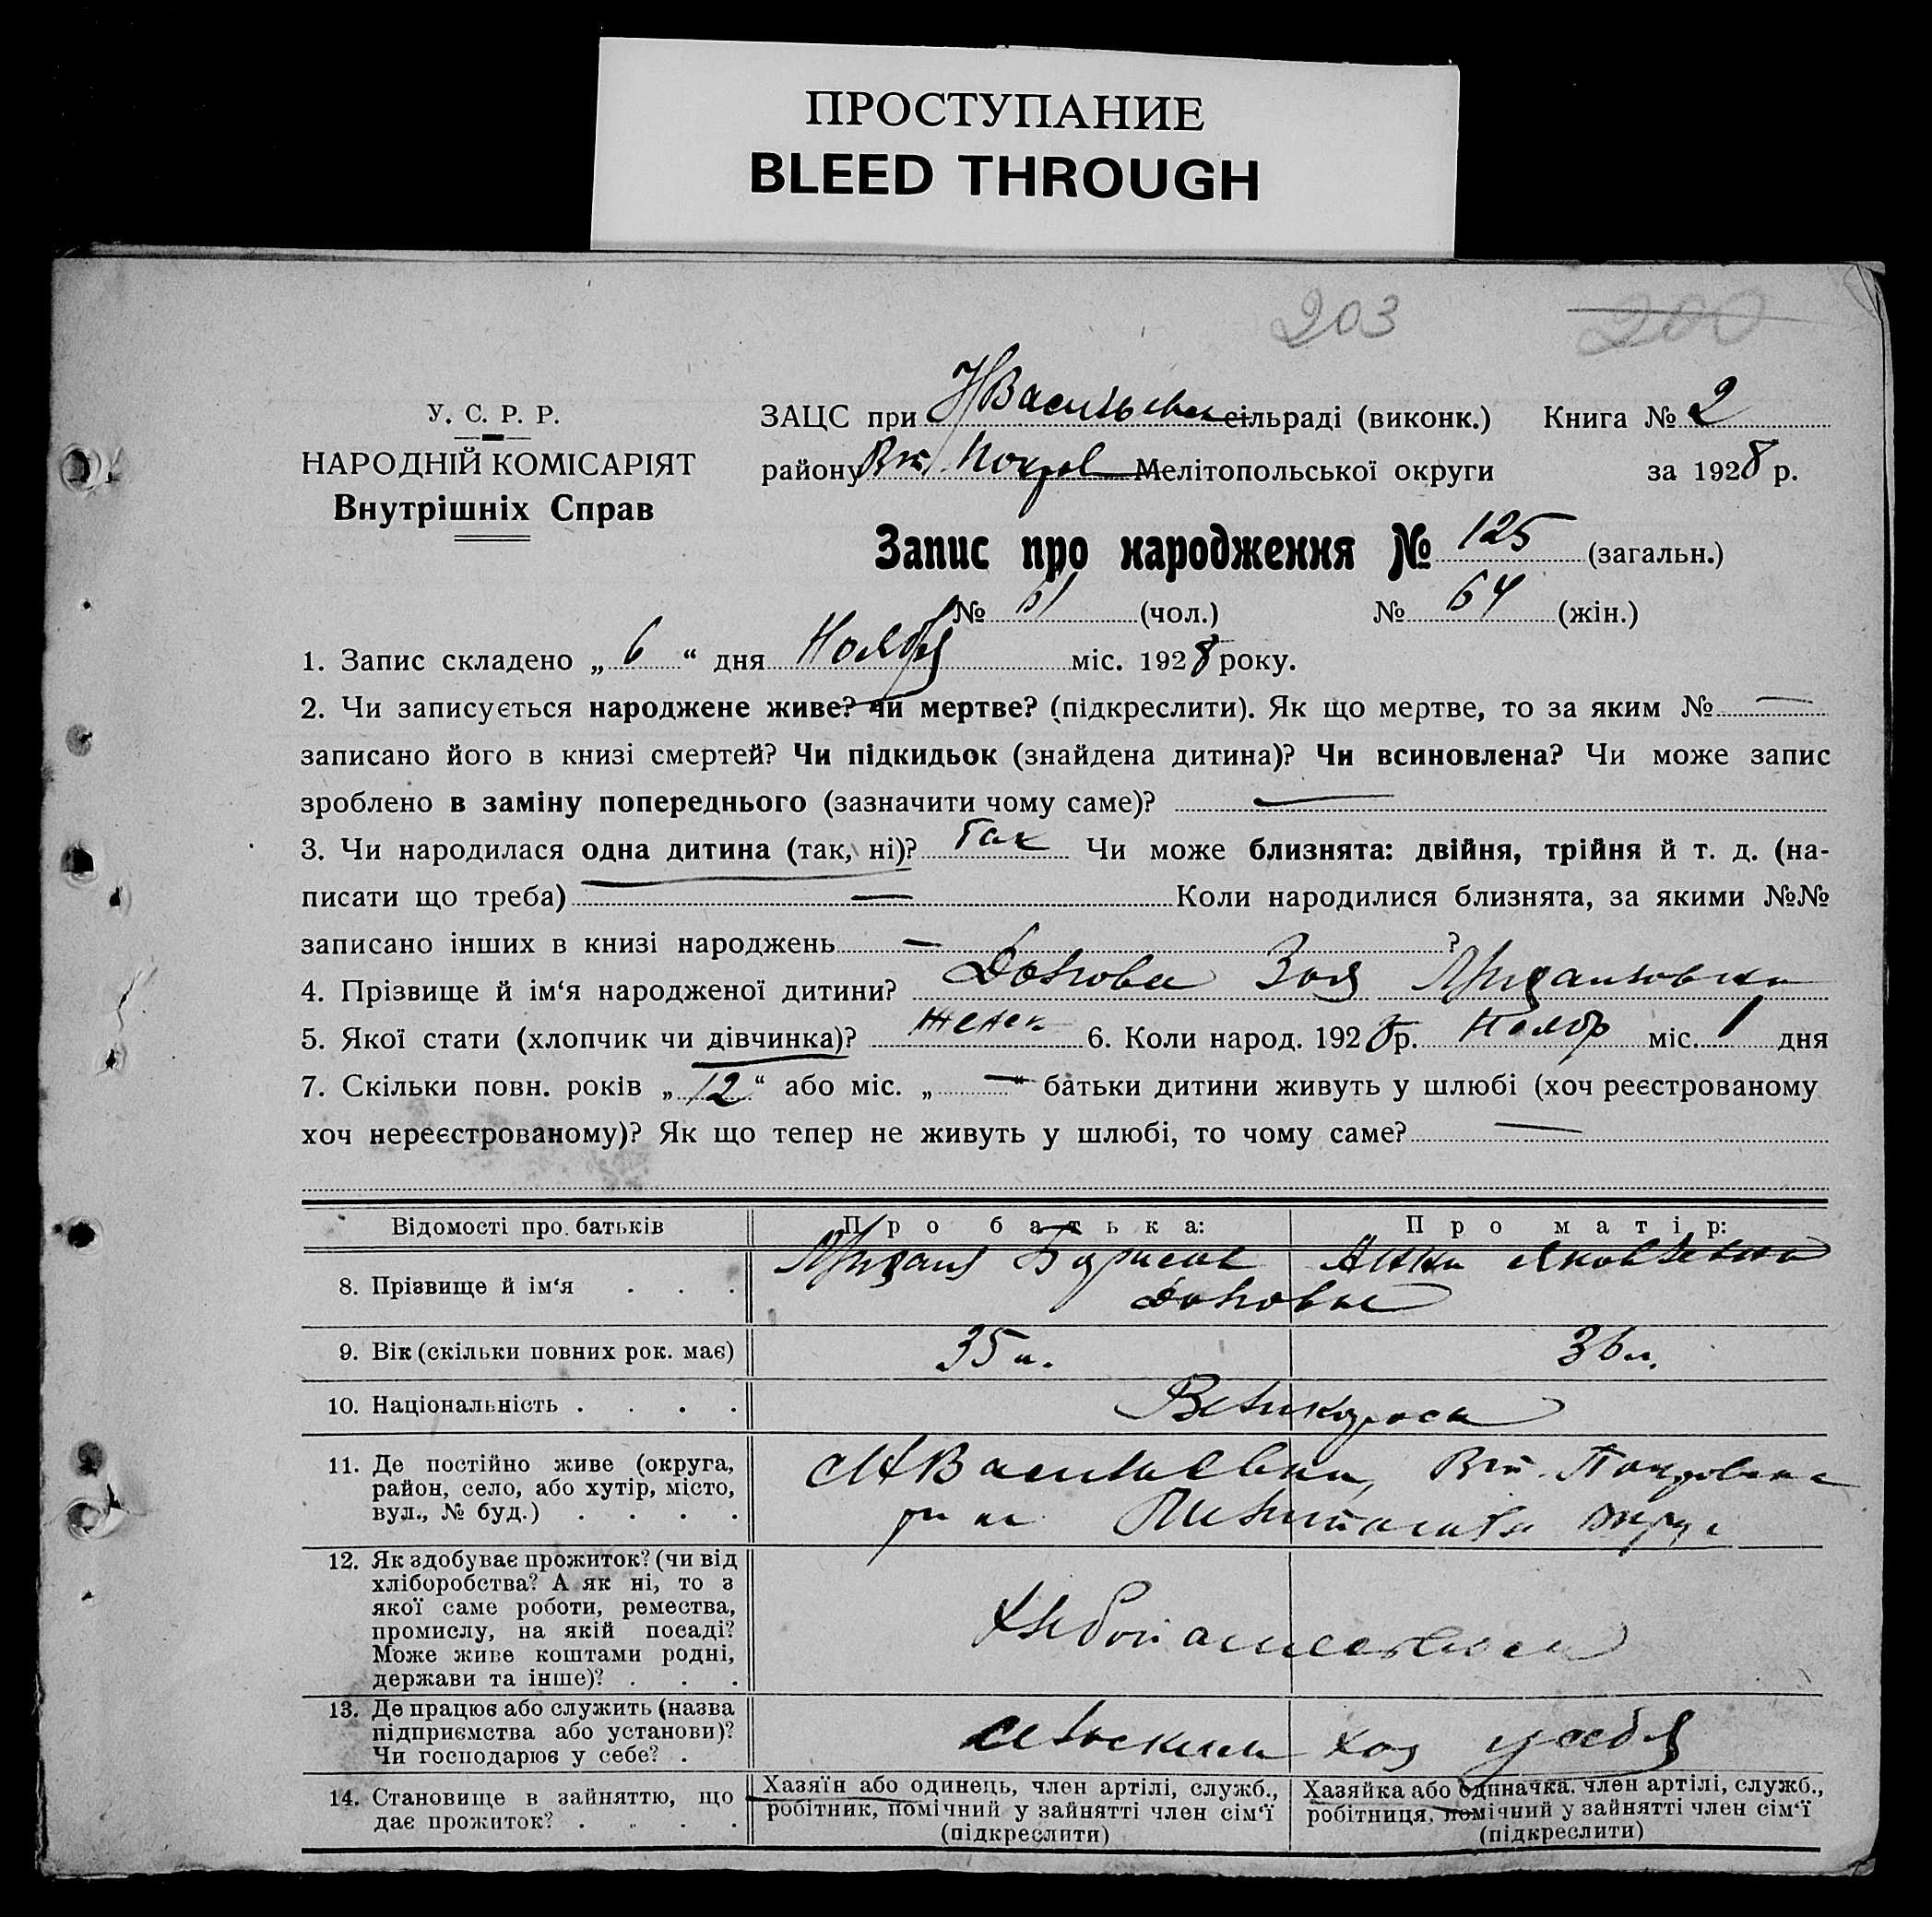 ПРОСТУПАНИЕ
BLEED THROUGH
203 200
У. С. Р. Р.
НАРОДНІЙ КОМІСАРІЯТ
Внутрішніх Справ
ЗАЦС при НВасильевк сільраді (виконк.) Книга № 2
району Вт. Покров Мелітопольської округи за 1928 р.
Запис про народження № 125 (загальн.)
№ 61 (чол.) № 64 (жін.)
1. Запис складено „ 6 “ дня Ноября міс. 1928 року.
2. Чи записується народжене живе? чи мертве? (підкреслити). Як що мертве, то за яким № —
записано його в книзі смертей? Чи підкидьок (знайдена дитина)? Чи всиновлена? Чи може запис
зроблено в заміну попереднього (зазначити чому саме)? —
3. Чи народилася одна дитина (так, ні)? Так Чи може близнята: двійня, трійня й т. д. (на-
писати що треба) — Коли народилися близнята, за якими №№
записано інших в книзі народжень — ?
4. Прізвище й ім‘я народженої дитини? Зоя
5. Якої стати (хлопчик чи дівчинка)? женск 6. Коли народ. 1928 р. Ноябр міс. 1 дня
7. Скільки повн. років „ 12 “ або міс. „ — “ батьки дитини живуть у шлюбі (хоч реєстрованому
хоч нереєстрованому)? Як що тепер не живуть у шлюбі, то чому саме? —
Відомості про батьків Про батька: Про матір:
8. Прізвище й ім‘я . . . Анна Яковлевна
9. Вік (скільки повних рок. має) 35 л. 36 л.
10. Національність . . . . Великоросы
11. Де постійно живе (округа, НВасильевка, Вт. Покровска
район, село, або хутір, місто,
вул., № буд.) . . . .
12. Як здобуває прожиток? (чи від
хліборобства? А як ні, то з
якої саме роботи, ремества,
промислу, на якій посаді?
Може живе коштами родні,
держави та інше)? . . . Хлебопашеством
13. Де працює або служить (назва
підприємства або установи)? сельским хоз у себя
Чи господарює у себе? .
14. Становище в зайняттю, що
дає прожиток? . . . .
Хазяїн або одинець, член артілі, служб.,
робітник, помічний у зайнятті член сім‘ї
(підкреслити)
Хазяйка або одиначка. член артілі, служб.,
робітниця, помічний у зайнятті член сім‘ї
(підкреслити)